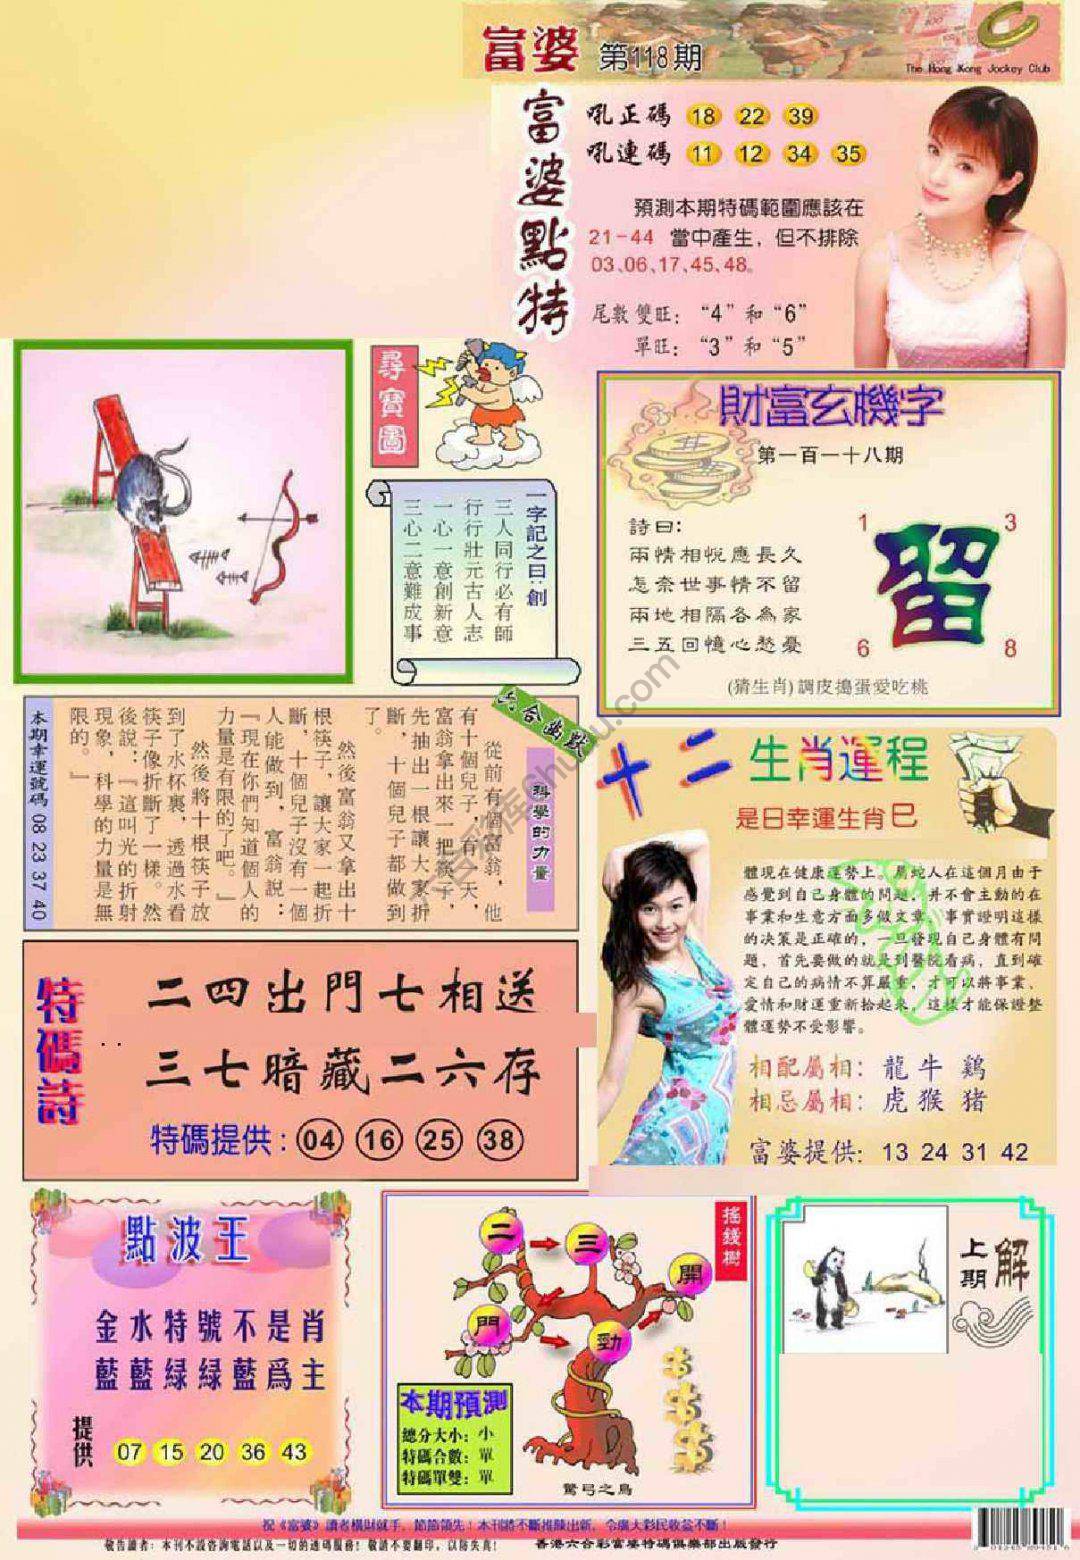 富婆 第118期
The Hong Kong Jockey Club
富婆點特
吼正碼 18 22 39
吼連碼 11 12 34 35
預測本期特碼範圍應該在
21-44 當中產生，但不排除
03、06、17、45、48。
尾數雙旺：“4”和“6”
單旺：“3”和“5”
尋寶圖
一字記之曰：創
三人同行必有師
行行壯元古人志
一心一意創新意
三心二意難成事
財富玄機字
第一百一十八期
詩曰:
兩情相悅應長久
怎奈世事情不留
兩地相隔各為家
三五回憶心愁憂
1 3
留
6 8
(猜生肖)調皮搗蛋愛吃桃
六合幽默
科學的力量
從前有個富翁，他
有十個兒子，有一天，
富翁拿出來一把筷子，
先抽出一根讓大家折
斷，十個兒子都做到
了。
然後富翁又拿出十
根筷子，讓大家一起折
斷，十個兒子沒有一個
人能做到，富翁說：
『現在你們知道個人的
力量是有限的了吧。』
然後將十根筷子放
到了水杯裏，透過水看
筷子像折斷了一樣。然
後說：『這叫光的折射
現象，科學的力量是無
限的。』
本期幸運號碼 08 23 37 40
十二生肖運程
是日幸運生肖巳
體現在健康運勢上。屬蛇人在這個月由于
感覺到自己身體的問題，并不會主動的在
事業和生意方面多做文章，事實證明這樣
的決策是正確的，一旦發現自己身體有問
題，首先要做的就是到醫院看病，直到確
定自己的病情不算嚴重，才可以將事業、
愛情和財運重新拾起來，這樣才能保證整
體運勢不受影響。
相配屬相：龍 牛 鷄
相忌屬相：虎 猴 猪
富婆提供：13 24 31 42
特碼詩
二四出門七相送
三七暗藏二六存
特碼提供：04 16 25 38
點波王
金水特號不是肖
藍藍緑緑藍爲主
提供 07 15 20 36 43
搖錢樹
二 三 開
門 勁
本期預測
總分大小：小
特碼合數：單
特碼單雙：單
驚弓之鳥
上期解
祝《富婆》讀者橫財就手，節節領先！本刊將不斷推陳出新，令廣大彩民收益不斷！
敬告讀者：本刊不設咨詢電話以及一切的透碼服務！敬請不要翻印，以防失真！
香港六合彩富婆特碼俱樂部出版發行